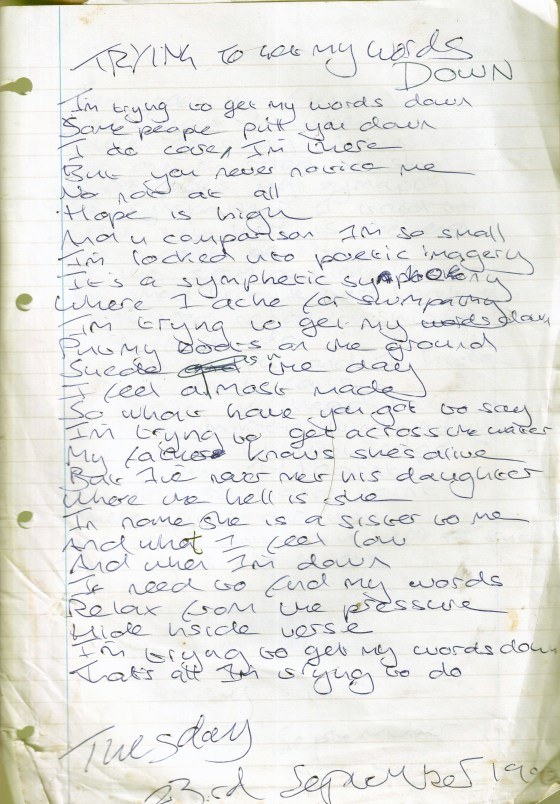 TRYING to get my words
DOWN
I'm trying to get my words down
Some people put you down
I do care, I'm there
But you never notice me
No not at all
Hope is high
And in comparison I'm so small
I'm locked into poetic imagery
It's a symphetic symphony
Where I ache for
I'm trying to get my words down
Put my boots on the ground
Suede is in the day
I feel almost made
So what have you got to say
I'm trying to get across the water
My father knows shes alive
But I've never met his daughter
Where the hell is she
In name she is a sister to me
And what I feel low
And when I'm down
I need to find my words
Relax from the pressure
Hide inside verse
I'm trying to get my words down
That's all I'm trying to do
Tuesday
23rd September